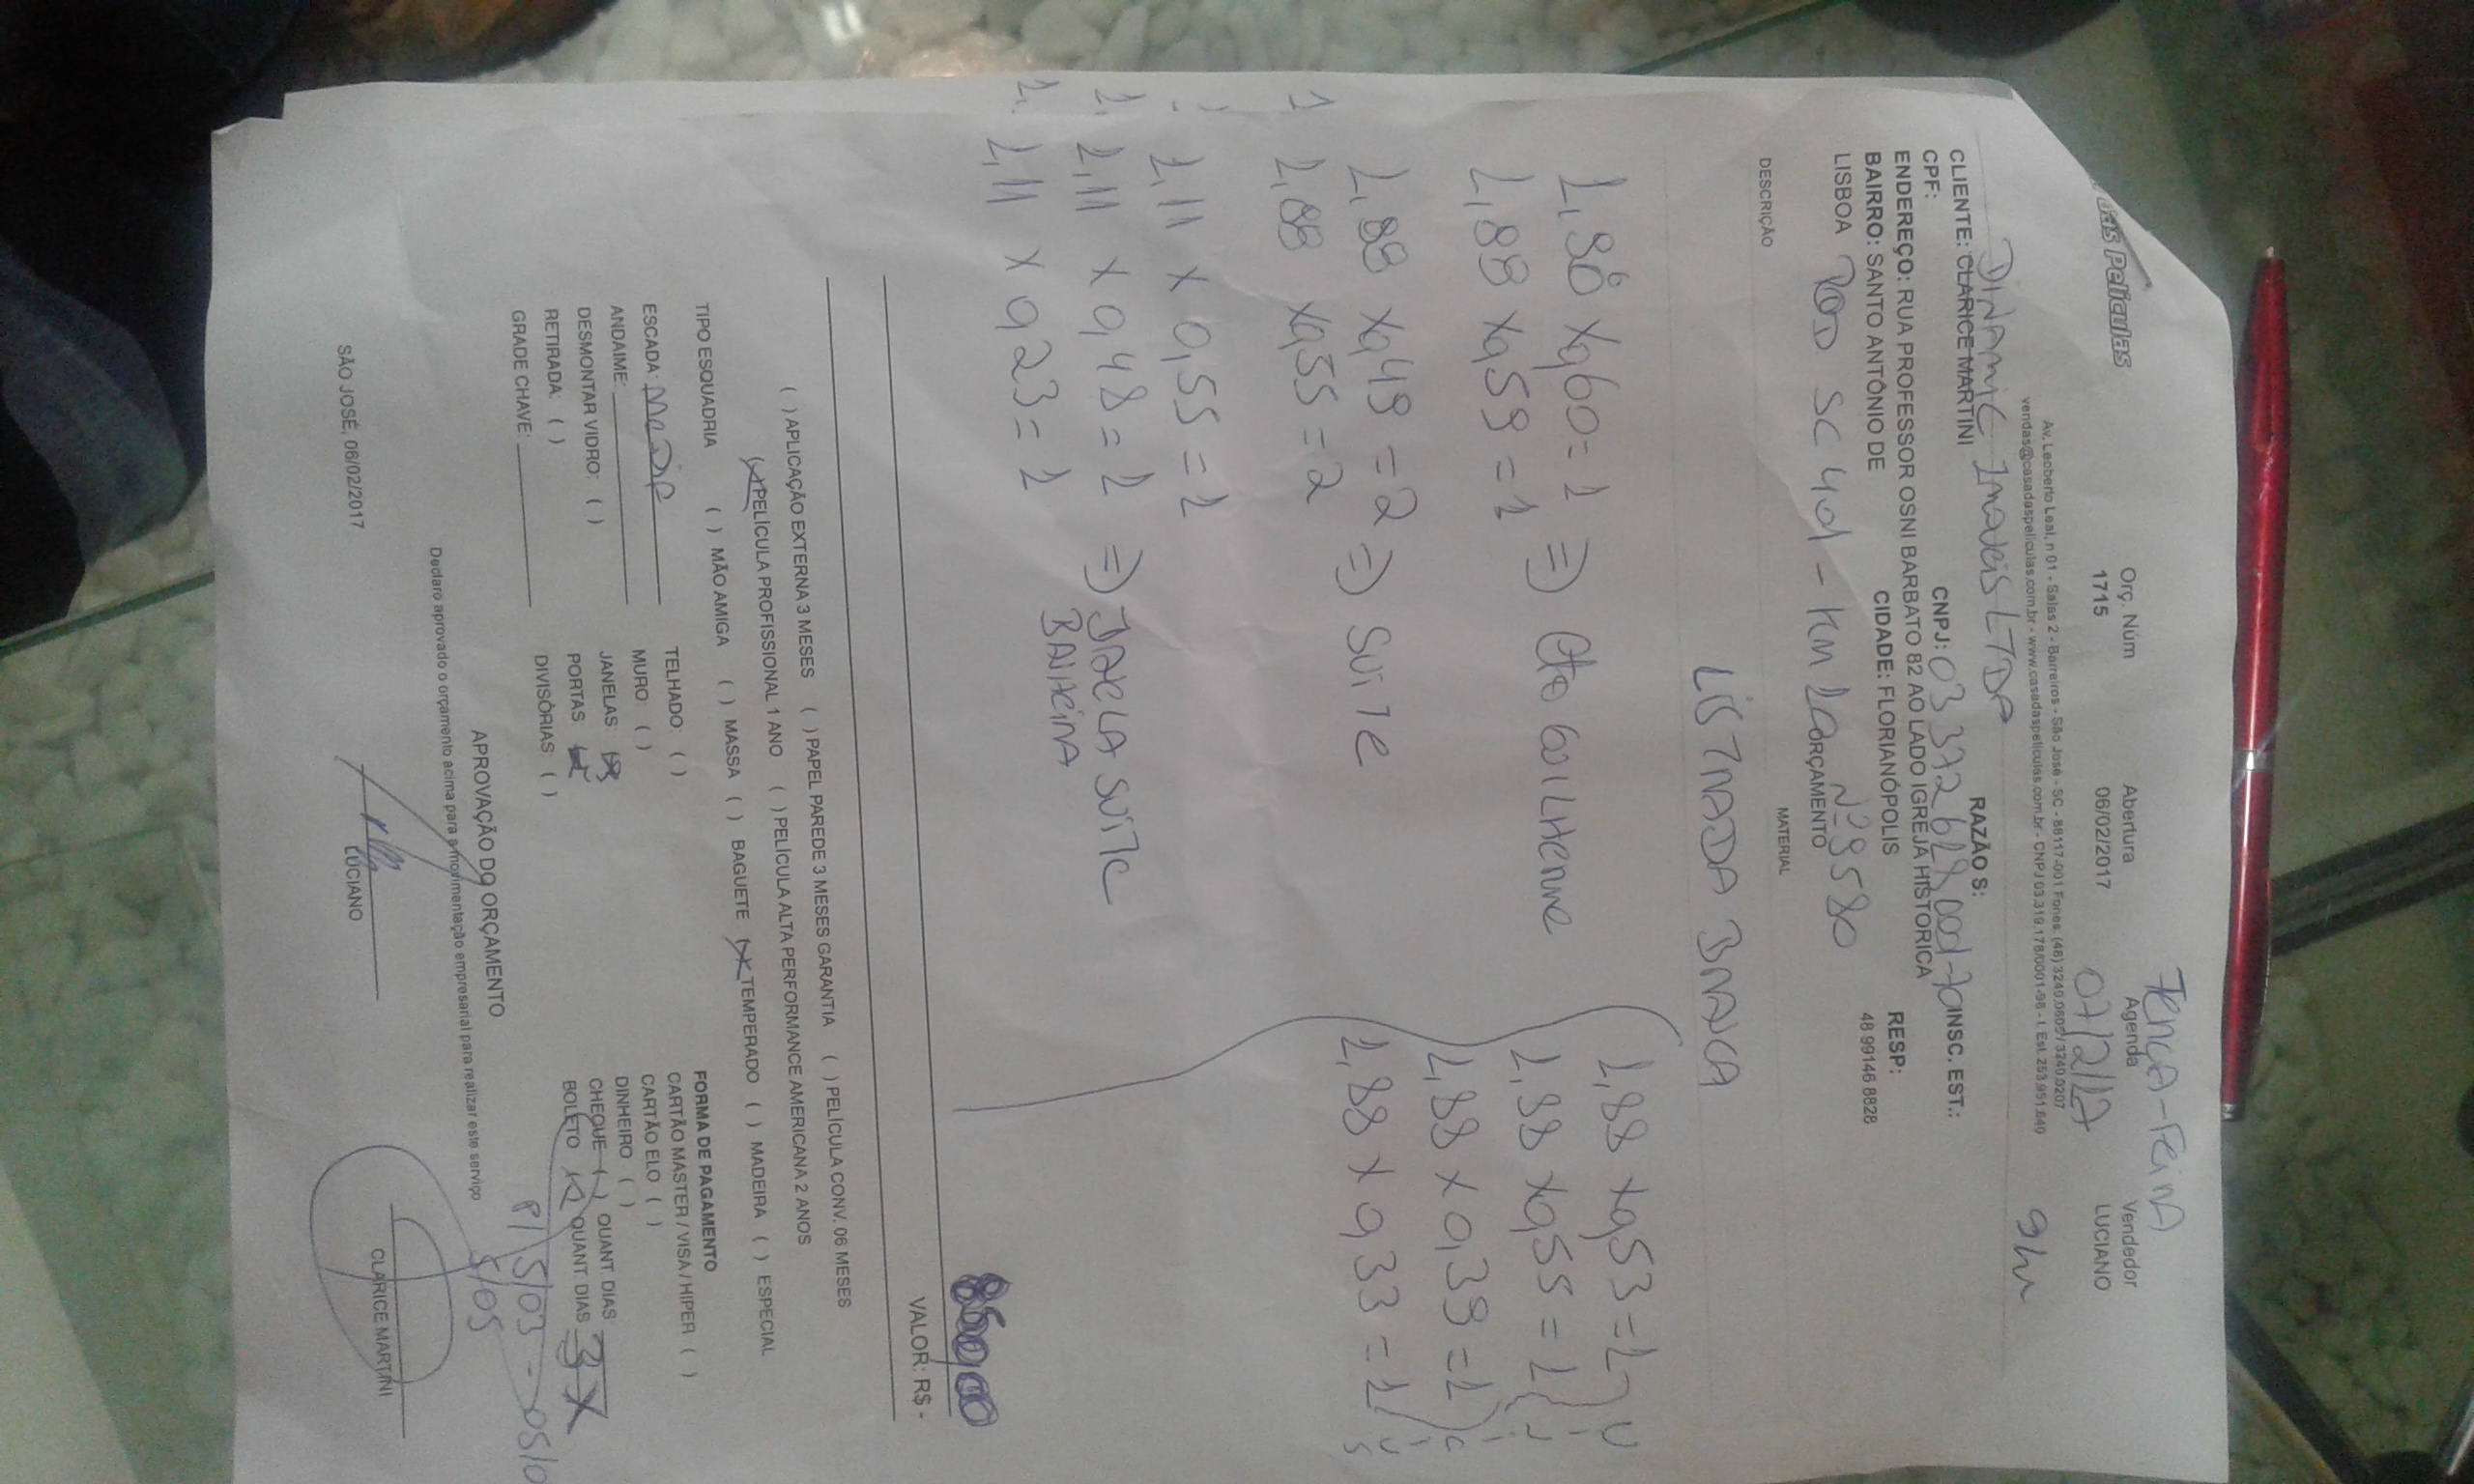 das Películas
Terça-Feira
Orç. Núm Abertura Agenda Vendedor
1715 06/02/2017 07/2/17 LUCIANO
Av. Leoberto Leal, n 01 - Salas 2 - Barreiros - São José - SC - 88117-001 Fones: (48) 3240.0605 / 3240.0207
vendas@casadaspeliculas.com.br - www.casadaspeliculas.com.br - CNPJ 03.319.178/0001-96 - I. Est. 253.951.640
9hr
Dinamic Imoveis LTDA
CLIENTE: CLARICE MARTINI RAZÃO S:
CPF: CNPJ: 03 372 629 0001-70 INSC. EST.:
ENDEREÇO: RUA PROFESSOR OSNI BARBATO 82 AO LADO IGREJA HISTORICA
BAIRRO: SANTO ANTÔNIO DE CIDADE: FLORIANÓPOLIS RESP:
LISBOA ROD SC 401 - Km 10 Nº 9580 48 99146 8828
ORÇAMENTO
DESCRIÇÃO MATERIAL
LISTRADA BRANCA
1,86 x 0,60 = 1 => Qto Guilherme
1,88 x 0,59 = 1
1,88 x 0,49 = 2 => Suite
1,88 x 0,55 = 2
1,88 x 0,53 = 1
1,88 x 0,55 = 1
1,88 x 0,39 = 1
1,88 x 0,33 = 1
1,11 x 0,55 = 1
1,11 x 0,48 = 1 => JANELA SUITE
1,11 x 0,23 = 1 BANHEIRA
850,00
VALOR: R$ -
( ) APLICAÇÃO EXTERNA 3 MESES ( ) PAPEL PAREDE 3 MESES GARANTIA ( ) PELÍCULA CONV. 06 MESES
(X) PELÍCULA PROFISSIONAL 1 ANO ( ) PELÍCULA ALTA PERFORMANCE AMERICANA 2 ANOS
TIPO ESQUADRIA ( ) MÃO AMIGA ( ) MASSA ( ) BAGUETE (X) TEMPERADO ( ) MADEIRA ( ) ESPECIAL
ESCADA: MEDIA TELHADO: ( ) FORMA DE PAGAMENTO
ANDAIME: MURO: ( ) CARTÃO MASTER / VISA / HIPER ( )
DESMONTAR VIDRO: ( ) JANELAS: (X) CARTÃO ELO ( )
RETIRADA: ( ) PORTAS (X) DINHEIRO ( )
GRADE CHAVE: DIVISÓRIAS: ( ) CHEQUE ( ) QUANT. DIAS
BOLETO (X) QUANT DIAS 3X
P/ 5/03 - 05/0
5/05
APROVAÇÃO DO ORÇAMENTO
Declaro aprovado o orçamento acima para a movimentação empresarial para realizar este serviço
SÃO JOSÉ, 06/02/2017 LUCIANO CLARICE MARTINI